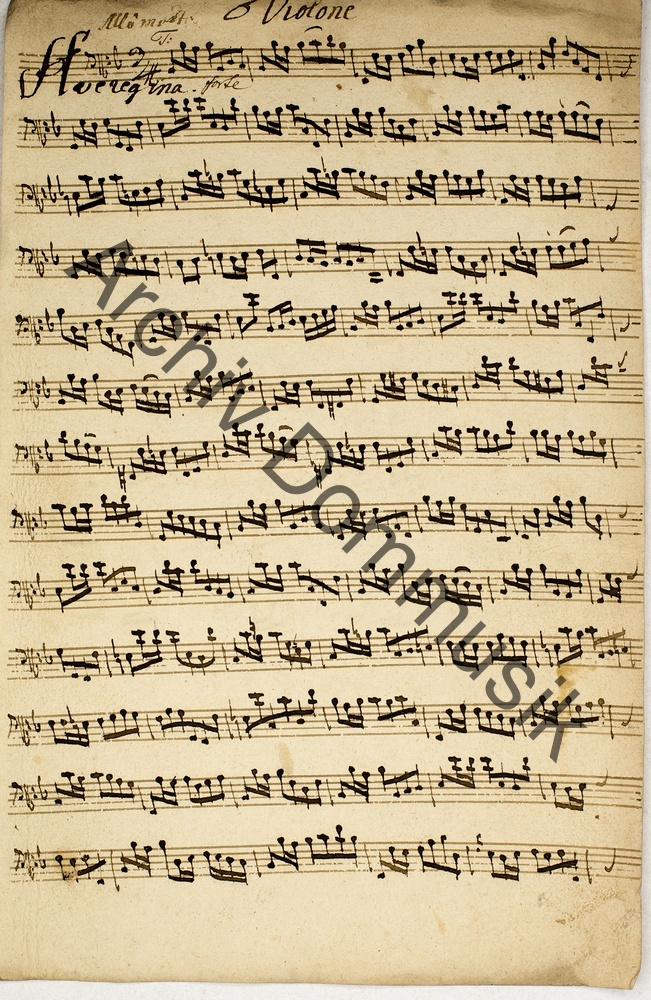 Violone
Allo modto
T:
Ave regina. forte
Archiv Dommusik